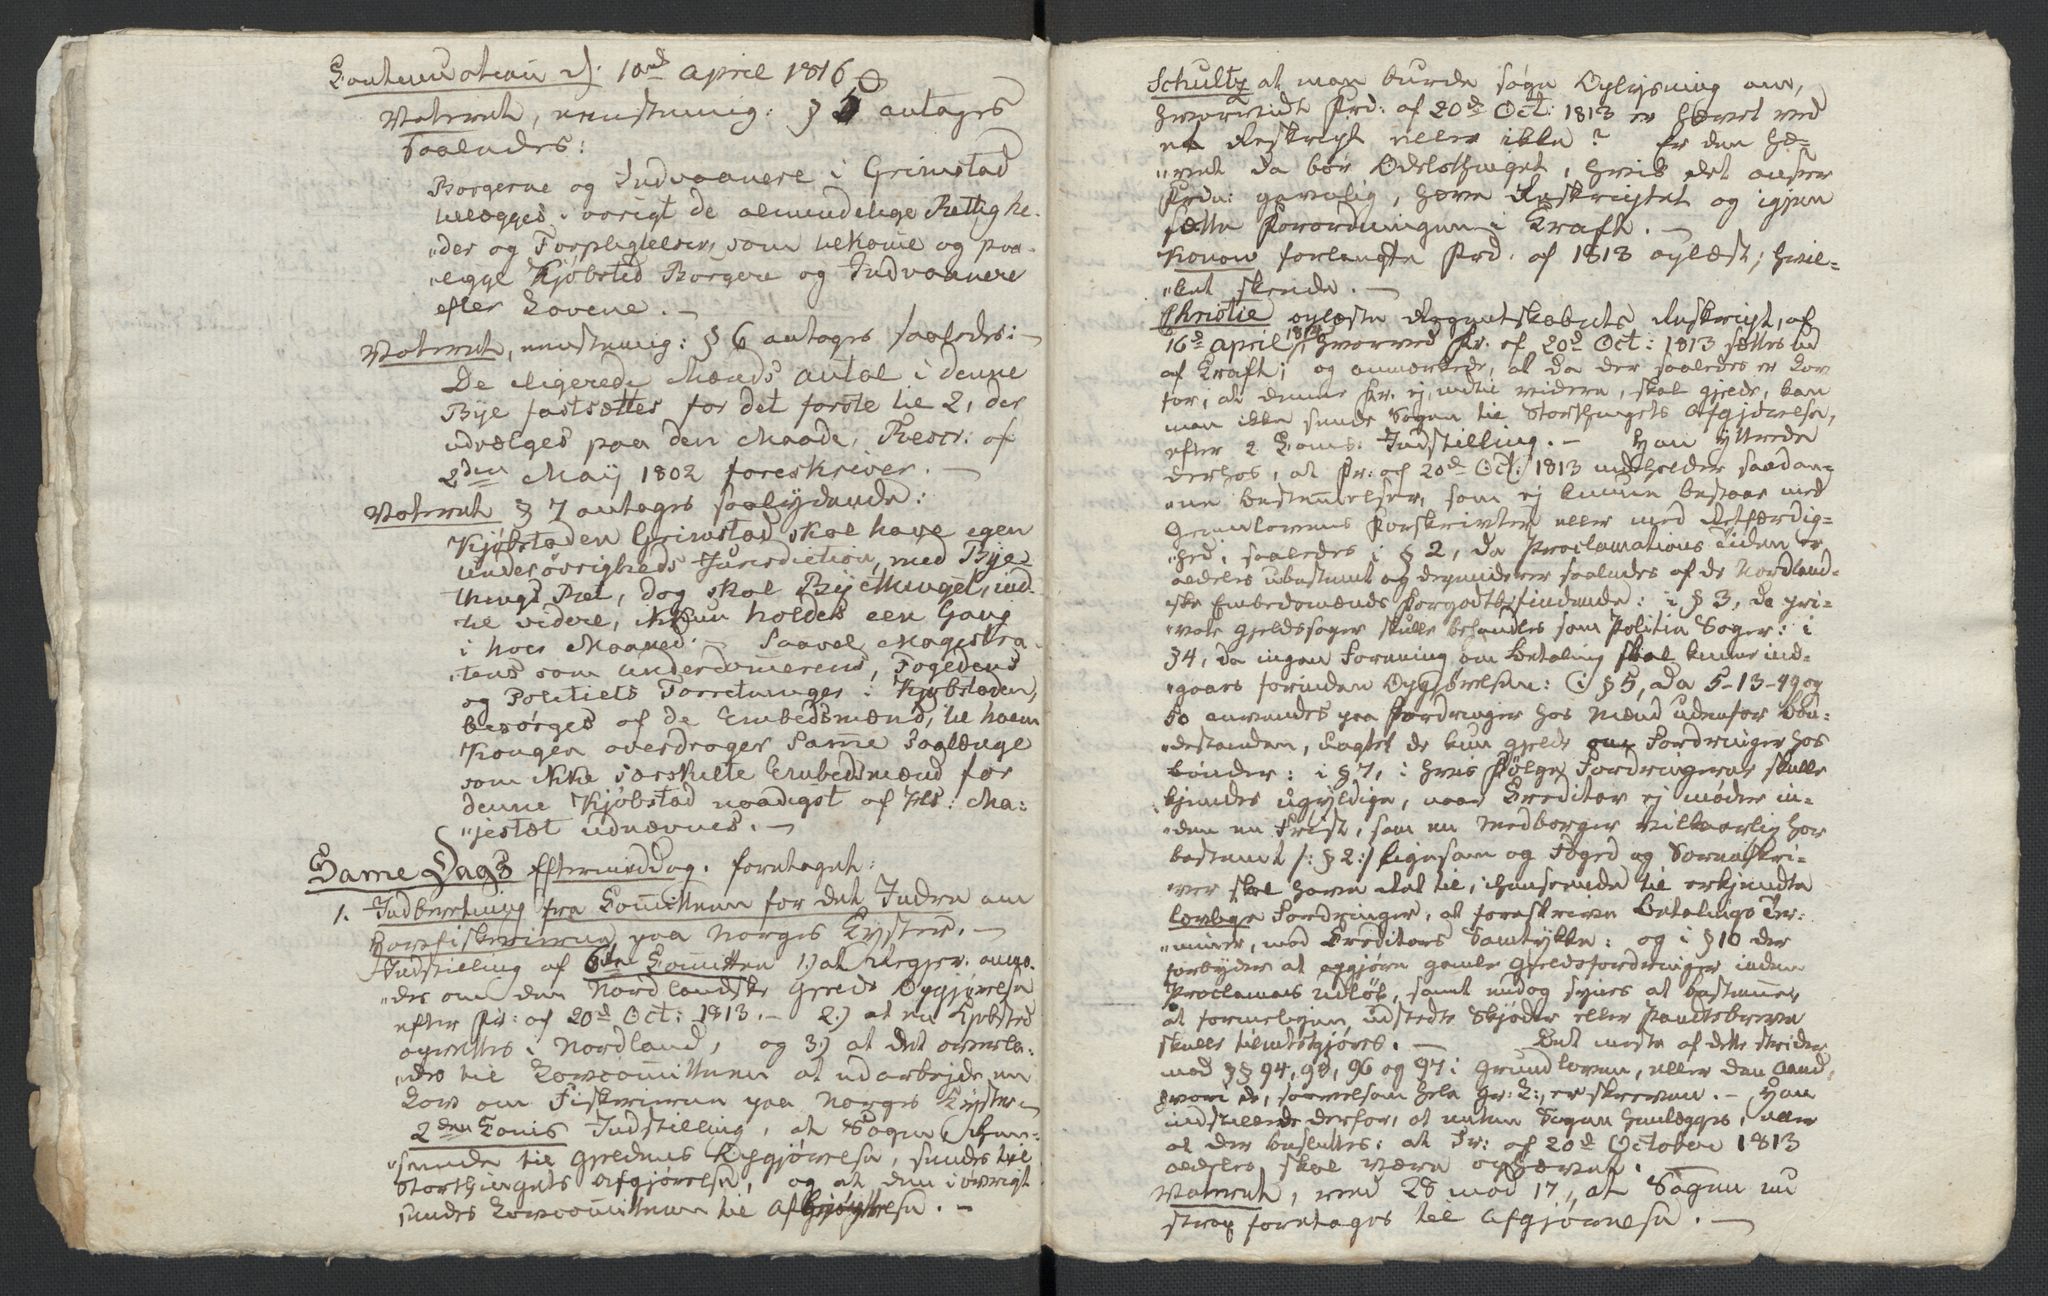 Continuation d. 10de April 1816
Voteret, eenstemmig: § 5 antages
saaledes:
Borgerne og Indvaanere i Grimstad
tillægges i øvrigt de almindelige Rettighe-
„der og Forpligtelser, som tilkomme og paa-
„ligge Kjøbsted Borgere og Indvaanere
efter Lovene. —
Voteret, eenstemmig: § 6 antages saaledes: —
De eligerede Mænds antal i denne
Bye fastsættes for det første til 2, der
udvælges paa den Maade, Rescr: af
2den May 1802 foreskriver. —
Voteret § 7 antages saalydende:
Kjøbstaden Grimstad skal have egen
Underøvrigheds Jurisdiction, med Bye-
things Ret, dog skal Bythinget, ind-
til videre, ikkun holdes een Gang
i hver Maaned. — Saavel Magistra-
„tens som Underdommerens, Fogedens
og Politiets Forretninger i Kjøbstaden,
besørges af de Embedsmænd, til hvem
Kongen overdrager Samme saalænge
som ikke særskilte Embedsmænd for
denne Kjøbstad naadigst af Hs: Ma:
„jestæt udnævnes. —
Same Dags Eftermiddag. foretaget:
1. Indberetning fra Comitteen for det Indre om
Havfiskerierne paa Norges Kyster. —
Indstilling af 6te Comitteen 1.) at Regjer: anmo-
„des om den Nordlandske Gjelds Opgjørelse
efter Fr: af 20de Oct: 1813. — 2.) at en Kjøbsted
oprettes i Nordland, og 3.) at det overla-
„des til Lovcomitteen at udarbejde en
Lov om Fiskerierne paa Norges Kyster. —
2den Comis Indstilling, at Sagen i Hen-
„seende til Gjeldens Opgjørelse, sendes til
Storthingets Afgjørelse, og at den i øvrigt
sendes Lovcomitteen til Afbenyttelse. —
Schultz at man burde søge Oplysning om,
hvorvidt Frd: af 20de Oct: 1813 er hævet ved
et Reskript eller ikke? Er den hæ-
„vet da bør Odelsthinget, hvis det anseer
Frdn: gavnlig, hæve Reskriptet og igjen
sætte Forordningen i Kraft. —
Konow forlangte Frd. af 1813 oplæst; hvil-
„ket skeede. —
Christie oplæste Regentskabets Reskript, af
16de April 1814, hvorved Fr. af 20de Oct: 1813 sættes ud
af Kraft; og anmærkede, at da der saaledes er Lov
for, at denne Fr. ej, indtil videre, skal gjelde, kan
man ikke sende Sagen til Storthingets Afgjørelse,
efter 2 Coms: Indstilling. — Han yttrede
derhos, at Fr: af 20de Oct: 1813 indeholder saadan-
„ne Bestemmelser, som ej kunne bestaae med
Grundlovens Forskrivter eller med Retfærdig-
„hed, saaledes i § 2, da Proclamations Tiden er
aldeles ubestemt og dependerer saaledes af de Nordland-
„ske Embedsmænds Forgodtbefindende: i § 3, da pri-
„vate Gjeldssager skulle behandles som Politie Sager: i
§ 4, da ingen Formening om Betaling skal kunne ind-
„gaaes forinden Opgjørelsen: i § 5, da 5-13-49 og
50 anvendes paa Fordringer hos Mænd udenfor Bon-
„destanden, uagtet de kun gjelde om Fordringer hos
Bønder: i § 7, i hvis Følge Fordringerne skulle
kjendes ugyldige, naar Creditor ej møder in-
„den en Frist, som en Medborger vilkaarlig har
bestemt /: § 2:/ ligesom og Foged og Sorenskri-
„ver skal have Ret til, i Henseende til erkjendte
lovlige Fordringer, at foreskrive Betalings Ter-
„miner, mod Creditors Samtykke: og i § 10 der
forbyder at opgjøre gamle Gjeldsfordringer inden
Proclamas Udløb, samt endog synes at bestemme,
at formeligen udstedte Skjøder eller Pantebreve
skulle tilintetgjøres. — Det meste af dette strider
mod §§ 94, 95, 96 og 97 i Grundloven, eller den Aand,
hvori de, saavelsom hele Gr: L:, er skreven. — Han
indstillede derfor, at enten Sagen henlægges, eller
at der besluttes: at Fr: af 20de October 1813
aldeles skal være ophævet.
Voteret, med 28 mod 17, at Sagen nu
strax foretages til Afgjørelse. —